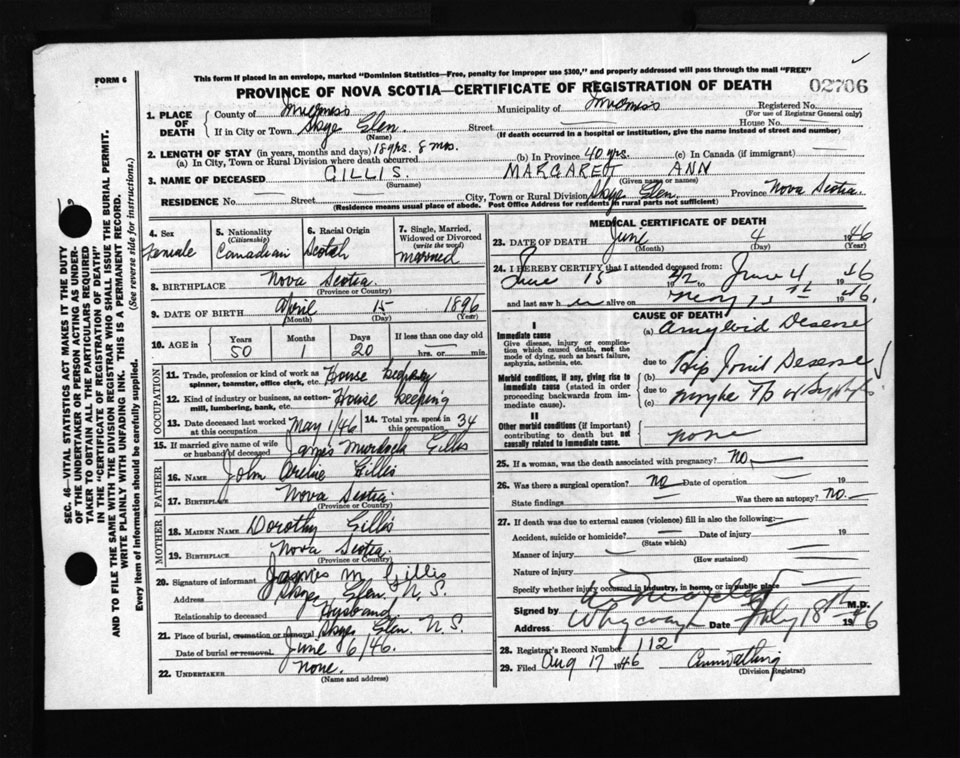 FORM 6
This form if placed in an envelope, marked "Dominion Statistics—Free, penalty for improper use $300," and properly addressed will pass through the mail "FREE"
PROVINCE OF NOVA SCOTIA—CERTIFICATE OF REGISTRATION OF DEATH
02706
1. PLACE OF DEATH
County of Inverness Municipality of Inverness Registered No.
(For use of Registrar General only)
If in City or Town Skye Glen. Street House No.
(Name) (If death occurred in a hospital or institution, give the name instead of street and number)
2. LENGTH OF STAY (in years, months and days) 18 yrs. 8 mos.
(a) In City, Town or Rural Division where death occurred (b) In Province 40 yrs. (c) In Canada (if immigrant)
3. NAME OF DECEASED GILLIS. MARGARET ANN
(Surname) (Given name or names)
RESIDENCE No. Street City, Town or Rural Division Skye Glen. Province Nova Scotia.
(Residence means usual place of abode. Post Office Address for residents in rural parts not sufficient)
4. Sex
Female
5. Nationality
(Citizenship)
Canadian
6. Racial Origin
Scotch
7. Single, Married, Widowed or Divorced
(write the word)
Married
8. BIRTHPLACE Nova Scotia
(Province or Country)
9. DATE OF BIRTH April 15 1896
(Month) (Day) (Year)
10. AGE in
Years Months Days If less than one day old
50 1 20 hrs. or min.
OCCUPATION
11. Trade, profession or kind of work as spinner, teamster, office clerk, etc. House keeping
12. Kind of industry or business, as cotten-mill, lumbering, bank, etc. House keeping
13. Date deceased last worked at this occupation May 1/46
14. Total yrs. spent in this occupation 34
15. If married give name of wife or husband of deceased James Murdock Gillis
FATHER
16. NAME John Gillis
17. BIRTHPLACE Nova Scotia.
(Province or Country)
MOTHER
18. MAIDEN NAME Dorothy Gillis
19. BIRTHPLACE Nova Scotia.
(Province or Country)
20. Signature of informant James M. Gillis
Address Skye Glen. N.S.
Relationship to deceased Husband
21. Place of burial, cremation or removal Skye Glen. N.S.
Date of burial or removal. June 6/46.
22. UNDERTAKER none.
(Name and address)
MEDICAL CERTIFICATE OF DEATH
23. DATE OF DEATH June 4 1946
(Month) (Day) (Year)
24. I HEREBY CERTIFY that I attended deceased from:
June 15 1942 to June 4 1946
and last saw her alive on 1946.
CAUSE OF DEATH
I
Immediate cause
Give disease, injury or complication which caused death, not the mode of dying, such as heart failure, asphyxia, asthenia, etc.
(a) Amyloid Desease
due to
Morbid conditions, if any, giving rise to immediate cause (stated in order proceeding backwards from immediate cause).
(b) Hip Joint Desease
due to
(c) maybe TB
II
Other morbid conditions (if important) contributing to death but not causally related to immediate cause.
none
25. If a woman, was the death associated with pregnancy? No.
26. Was there a surgical operation? No Date of operation 19
State findings Was there an autopsy? No.
27. If death was due to external causes (violence) fill in also the following:—
Accident, suicide or homicide? Date of injury 19
(State which)
Manner of injury
(How sustained)
Nature of injury
Specify whether injury occurred in industry, in home, or in public place
Signed by M.D.
Address Whycocomagh Date July 18th 1946
28. Registrar's Record Number 112
29. Filed Aug 17 1946
(Division Registrar)
SEC. 46—VITAL STATISTICS ACT MAKES IT THE DUTY
OF THE UNDERTAKER OR PERSON ACTING AS UNDER-
TAKER TO OBTAIN ALL THE PARTICULARS REQUIRED
IN THE "CERTIFICATE OF REGISTRATION OF DEATH"
AND TO FILE THE SAME WITH THE DIVISION REGISTRAR WHO SHALL ISSUE THE BURIAL PERMIT.
WRITE PLAINLY WITH UNFADING INK. THIS IS A PERMANENT RECORD.
Every item of Information should be carefully supplied. (See reverse side for instructions.)